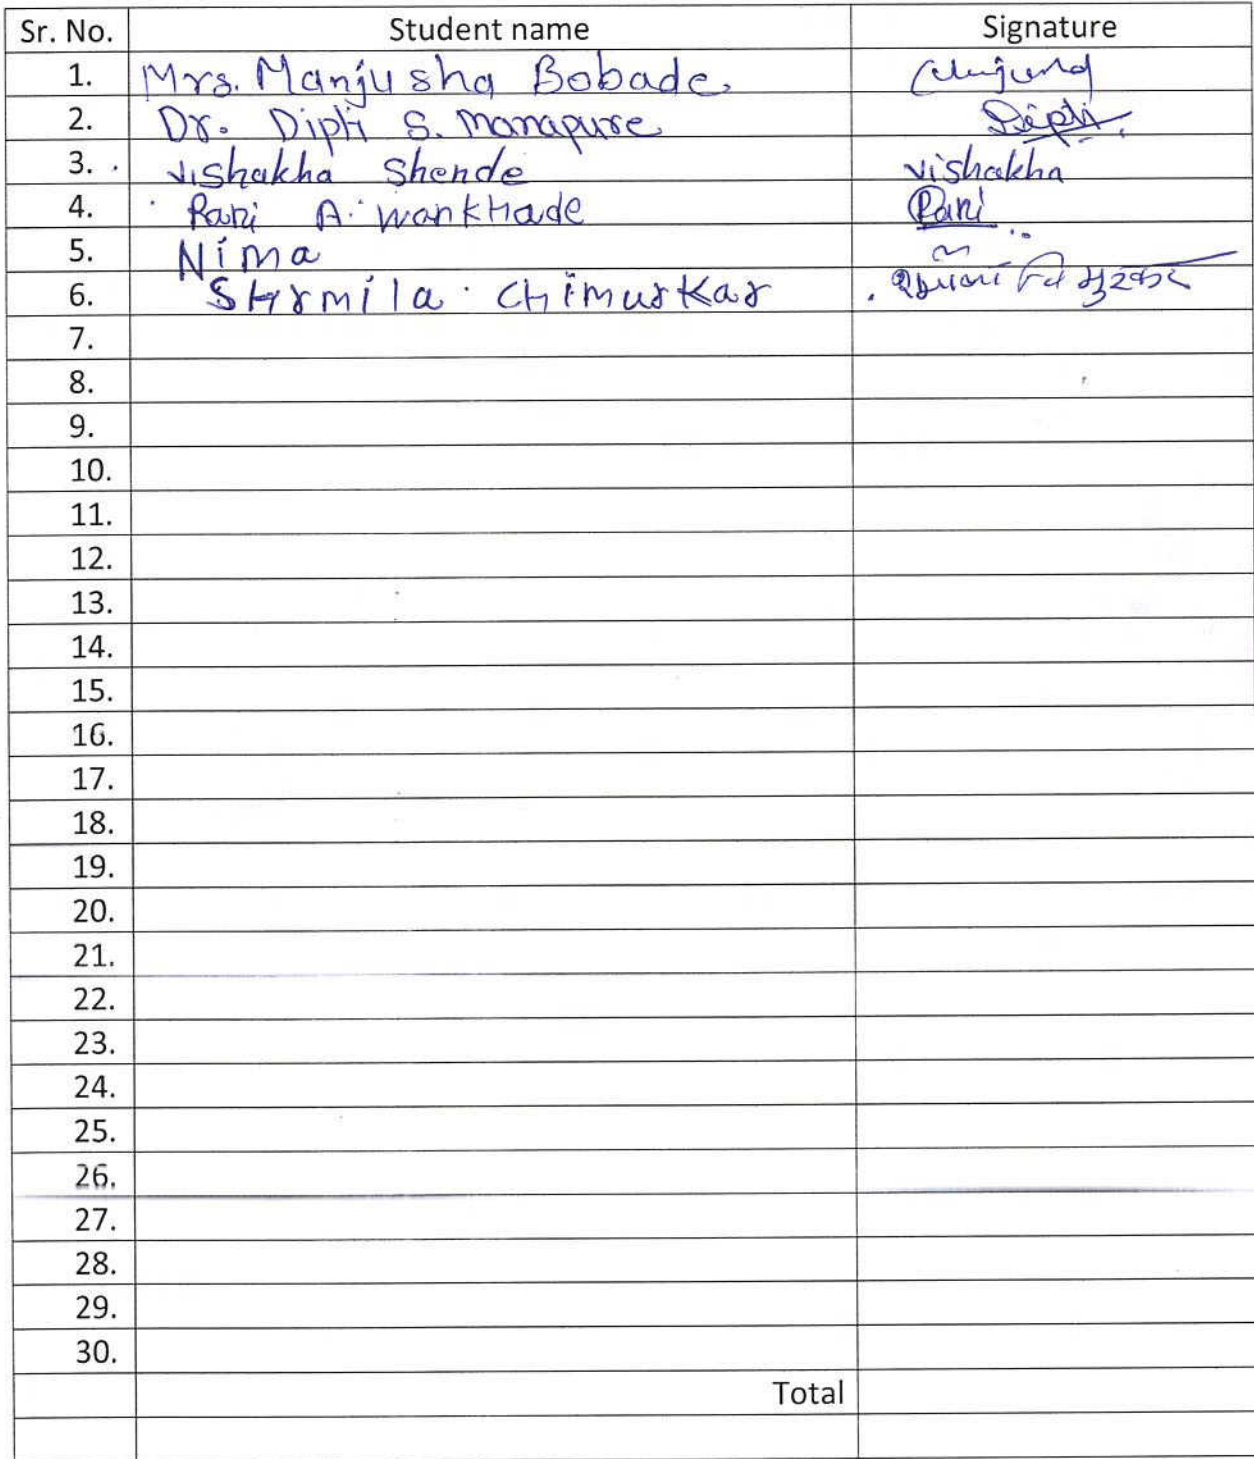 Sr. No. Student name Signature
1. Mrs. Manjusha Bobade.
2. Dr. Dipti S. Manapure Dipti
3. Vishakha Shende vishakha
4. Rani A. Wankhade Rani
5. Nima
6. SHrmila CHimurkar
7.
8.
9.
10.
11.
12.
13.
14.
15.
16.
17.
18.
19.
20.
21.
22.
23.
24.
25.
26.
27.
28.
29.
30.
Total